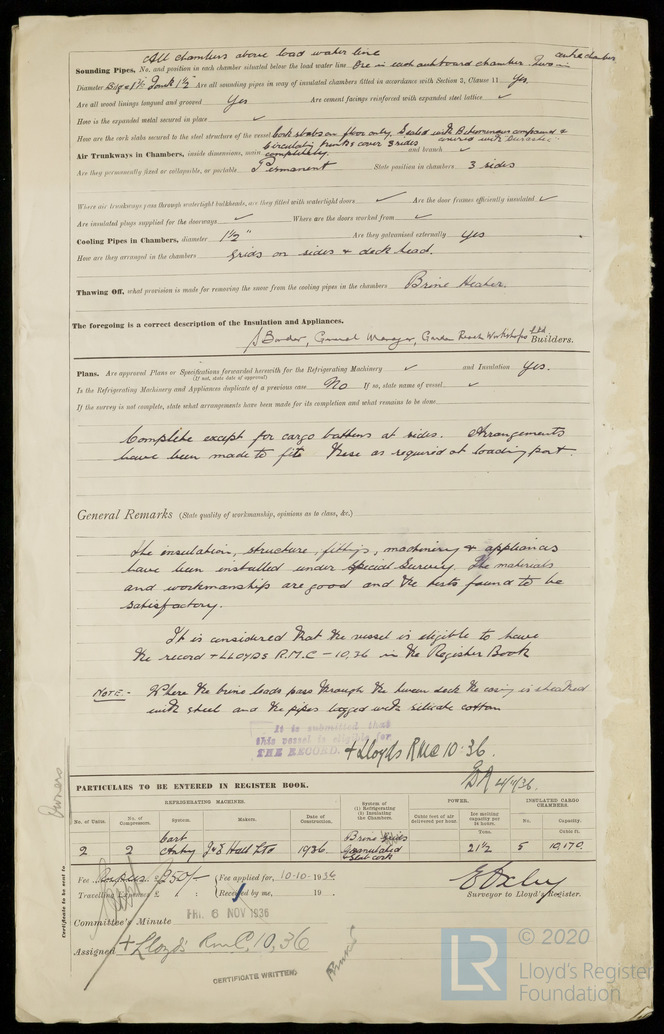 All chambers above load water line centre chamber
Sounding Pipes, No. and position in each chamber situated below the load water line. One in each outboard chamber. Two in
Diameter Bilge 1½" Tank 1½" Are all sounding pipes in way of insulated chambers fitted in accordance with Section 3, Clause 11 Yes
Are all wood linings tongued and grooved Yes Are cement facings reinforced with expanded steel lattice ✓
How is the expanded metal secured in place ✓
How are the cork slabs secured to the steel structure of the vessel Cork slabs on floor only. Sealed with Bitumous compound &
covered with
Air Trunkways in Chambers, inside dimensions, main Circulating trunks cover 3 sides completely. and branch ✓
Are they permanently fixed or collapsible, or portable Permanent State position in chambers 3 sides
Where air trunkways pass through watertight bulkheads, are they fitted with watertight doors ✓ Are the door frames efficiently insulated ✓
Are insulated plugs supplied for the doorways ✓ Where are the doors worked from ✓
Cooling Pipes in Chambers, diameter 1½" Are they galvanised externally Yes
How are they arranged in the chambers Grids on sides & deck head.
Thawing Off, what provision is made for removing the snow from the cooling pipes in the chambers Brine Heater.
The foregoing is a correct description of the Insulation and Appliances.
General Manager, Garden Reach Workshops Ltd Builders.
Plans. Are approved Plans or Specifications forwarded herewith for the Refrigerating Machinery ✓ and Insulation Yes.
(If not, state date of approval)
Is the Refrigerating Machinery and Appliances duplicate of a previous case No If so, state name of vessel ✓
If the survey is not complete, state what arrangements have been made for its completion and what remains to be done
Complete except for cargo battens at sides. Arrangements
have been made to fit these as required at loading port.
General Remarks (State quality of workmanship, opinions as to class, &c.)
The insulation, structure, fittings, machinery & appliances
have been installed under Special Survey. The materials
and workmanship are good and the tests found to be
satisfactory.
It is considered that the vessel is eligible to have
the record + LLOYDS R.M.C - 10,36 in the Register Book
NOTE:- Where the brine leads pass through the tween deck the casing is sheathed
with steel and the pipes lagged with silicate cotton
It is submitted that
this vessel is eligible for
THE RECORD. + Lloyds RMC 10.36.
4/11/36.
Owners
PARTICULARS TO BE ENTERED IN REGISTER BOOK.
REFRIGERATING MACHINES. System of (1) Refrigerating (2) Insulating the Chambers. POWER. INSULATED CARGO CHAMBERS.
No. of Units. No. of Compressors. System. Makers. Date of Construction. Cubic feet of air delivered per hour. Ice melting capacity per 24 hours. No. Capacity.
Tons. Cubic ft.
2 2 Carb Anhy J & E Hall Ltd 1936 Brine Grids Granulated & Slab cork 21½ 5 10,170
Fee Rupees £250/- Fee applied for, 10-10-1936
Travelling Expenses £ : : Received by me, 19
Surveyor to Lloyd's Register.
Certificate to be sent to
Committee's Minute FRI. 6 NOV 1936
Assigned + Lloyd's RMC, 10,36
CERTIFICATE WRITTEN
LR © 2020
Lloyd's Register
Foundation